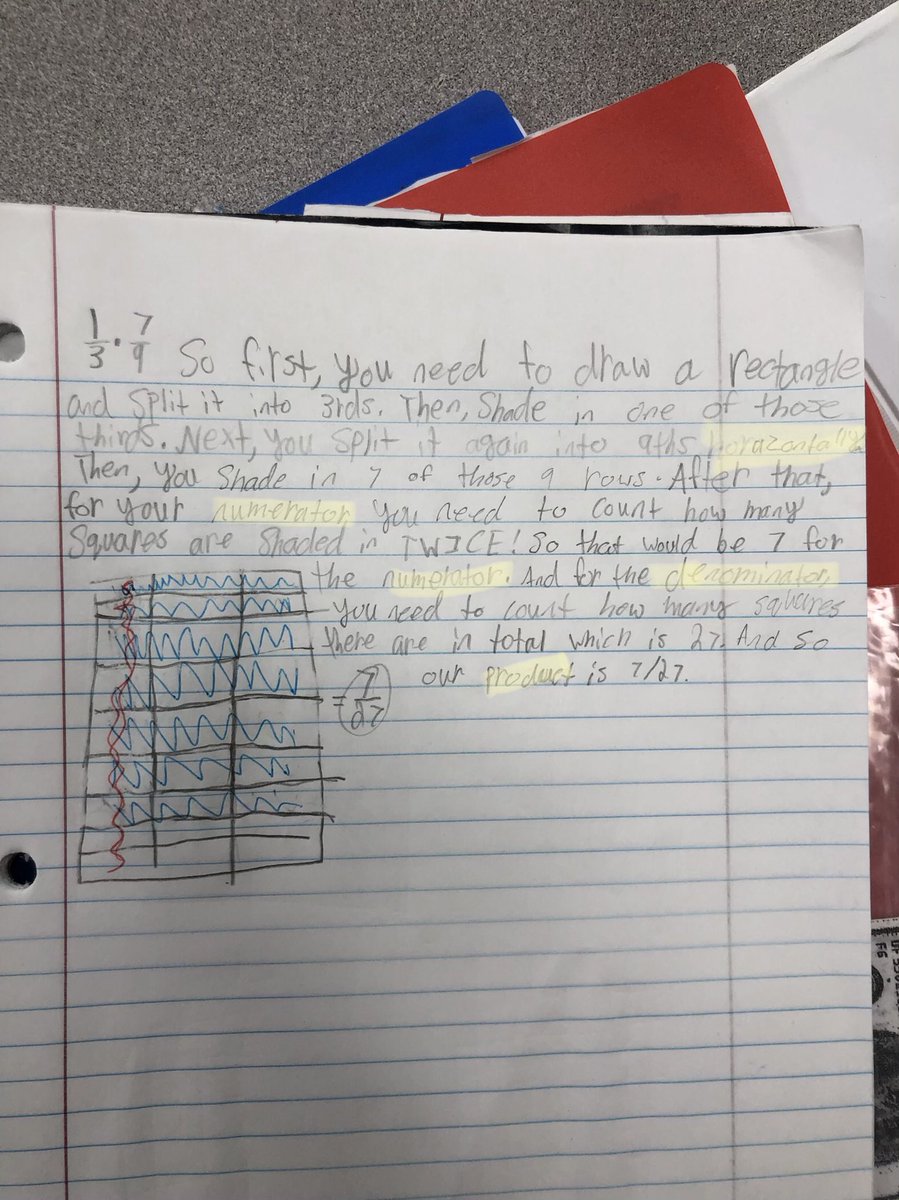 1/3 · 7/9 So first, you need to draw a rectangle
and Split it into 3rds. Then, Shade in one of those
thirds. Next, you split it again into 9ths horazontally
Then, you Shade in 7 of those 9 rows. After that,
for your numerator you need to count how many
Squares are Shaded in TWICE! So that would be 7 for
the numerator. And for the denominator,
you need to count how many squares
there are in total which is 27. And so
our product is 7/27.
= 7/27